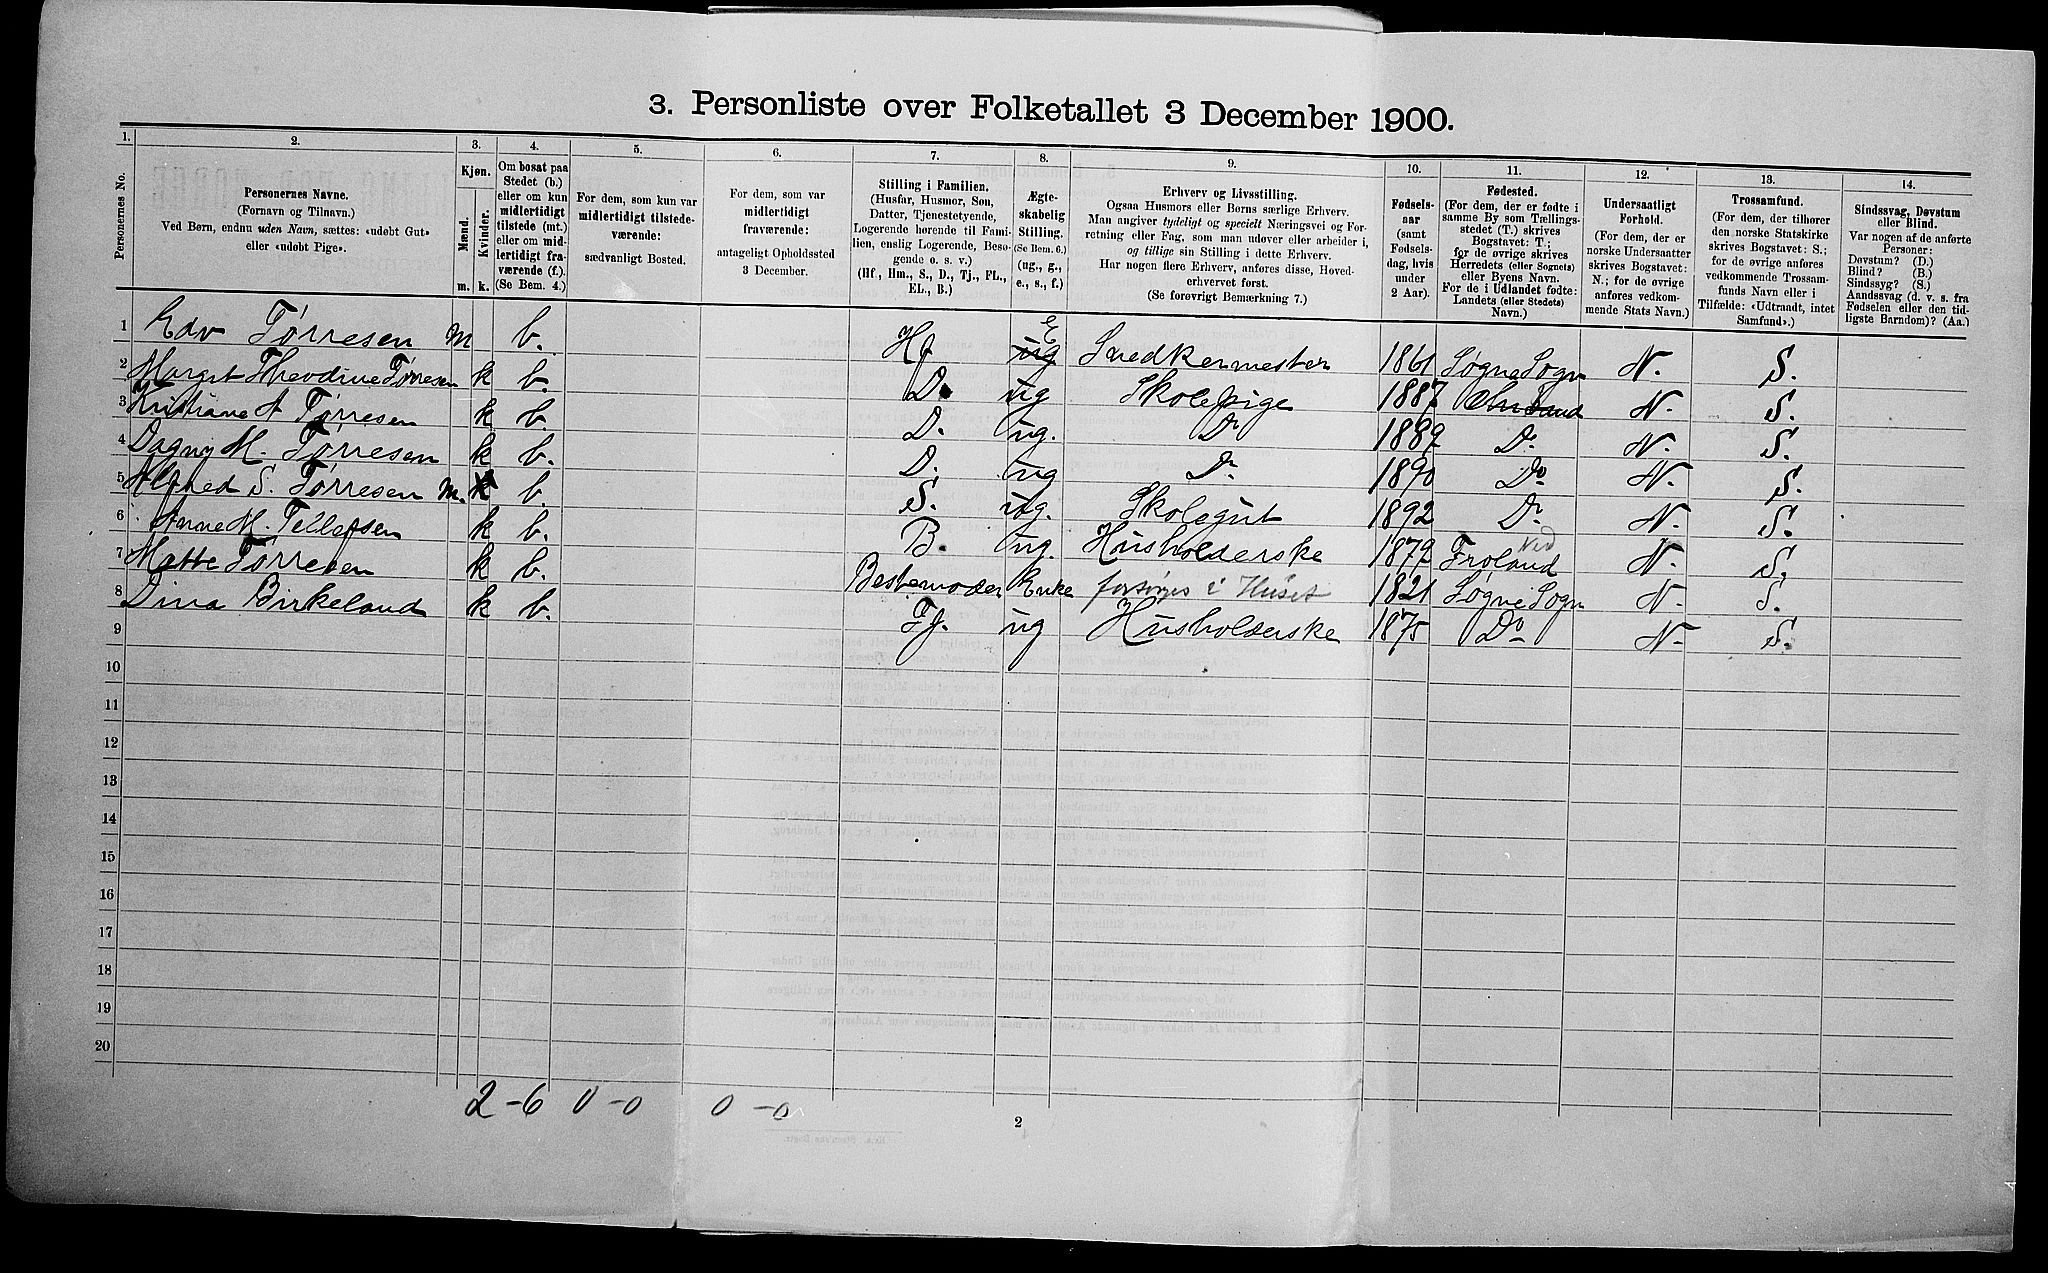 3. Personliste over Folketallet 3 December 1900.
1. 2. 3. 4. 5. 6. 7. 8. 9. 10. 11. 12. 13. 14.
Personernes No.
Personernes Navne.
(Fornavn og Tilnavn.)
Ved Børn, endnu uden Navn, sættes: «udøbt Gut»
eller «udøbt Pige».
Kjøn.
Mænd.
Kvinder.
m. k.
Om bosat paa
Stedet (b.)
eller om kun
midlertidigt
tilstede (mt.)
eller om mid-
lertidigt fra-
værende (f.).
(Se Bem. 4.)
For dem, som kun var
midlertidigt tilstede-
værende:
sædvanligt Bosted.
For dem, som var
midlertidigt
fraværende:
antageligt Opholdssted
3 December.
Stilling i Familien.
(Husfar, Husmor, Søn,
Datter, Tjenestetyende,
Logerende hørende til Fami-
lien, enslig Logerende, Besø-
gende o. s. v.)
(Hf., Hm., S., D., Tj., FL.,
EL., B.)
Ægte-
skabelig
Stilling.
(Se Bem. 6.)
(ug., g.,
e., s., f.)
Erhverv og Livsstilling.
Ogsaa Husmors eller Børns særlige Erhverv.
Man angiver tydeligt og specielt Næringsvei og For-
retning eller Fag, som man udøver eller arbeider i,
og tillige sin Stilling i dette Erhverv.
Har nogen flere Erhverv, anføres disse, Hoved-
erhvervet først.
(Se forøvrigt Bemærkning 7.)
Fødsels-
aar
(samt
Fødsels-
dag, hvis
under
2 Aar).
Fødested.
(For dem, der er fødte i
samme By som Tællings-
stedet (T.) skrives
Bogstavet: T.;
for de øvrige skrives
Herredets (eller Sognets)
eller Byens Navn.
For de i Udlandet fødte:
Landets (eller Stedets)
Navn.)
Undersaatligt
Forhold.
(For dem, der er
norske Undersaatter
skrives Bogstavet:
N.; for de øvrige
anføres vedkom-
mende Stats Navn.)
Trossamfund.
(For dem, der tilhører
den norske Statskirke
skrives Bogstavet: S.;
for de øvrige anføres
vedkommende Trossam-
funds Navn eller i
Tilfælde: «Udtraadt, intet
Samfund».)
Sindssvag, Døvstum
eller Blind.
Var nogen af de anførte
Personer:
Døvstum? (D.)
Blind? (B.)
Sindssyg? (S.)
Aandssvag (d. v. s. fra
Fødselen eller den tid-
ligste Barndom)? (Aa.)
1 Edv Tørresen m b. Hf ug E Snedkermester 1861 Søgne Sogn N. S.
2 Margit Theodine Tørresen k b. D. ug Skolepige 1887 Chrsand N. S.
3 Kristiane A Tørresen k b. D. ug. Do 1889 Do N. S.
4 Dagny M. Tørresen k b. D. ug Do 1890 Do N. S.
5 Alfred S. Tørresen m. k b. S. ug. Skolegut 1892 Do N. S.
6 Anne M. Tellefsen k b. B. ug. Husholderske 1879 Froland Ned N. S.
7 Mette Tørresen k b. Bestemoder Enke forsørges i Huset 1821 Søgne Sogn N. S.
8 Dina Birkeland k b. Tj. ug Husholderske 1875 Do N. S.
9
10
11
12
13
14
15
16
17
18
19
20
2 - 6 0 - 0 0 - 0
2